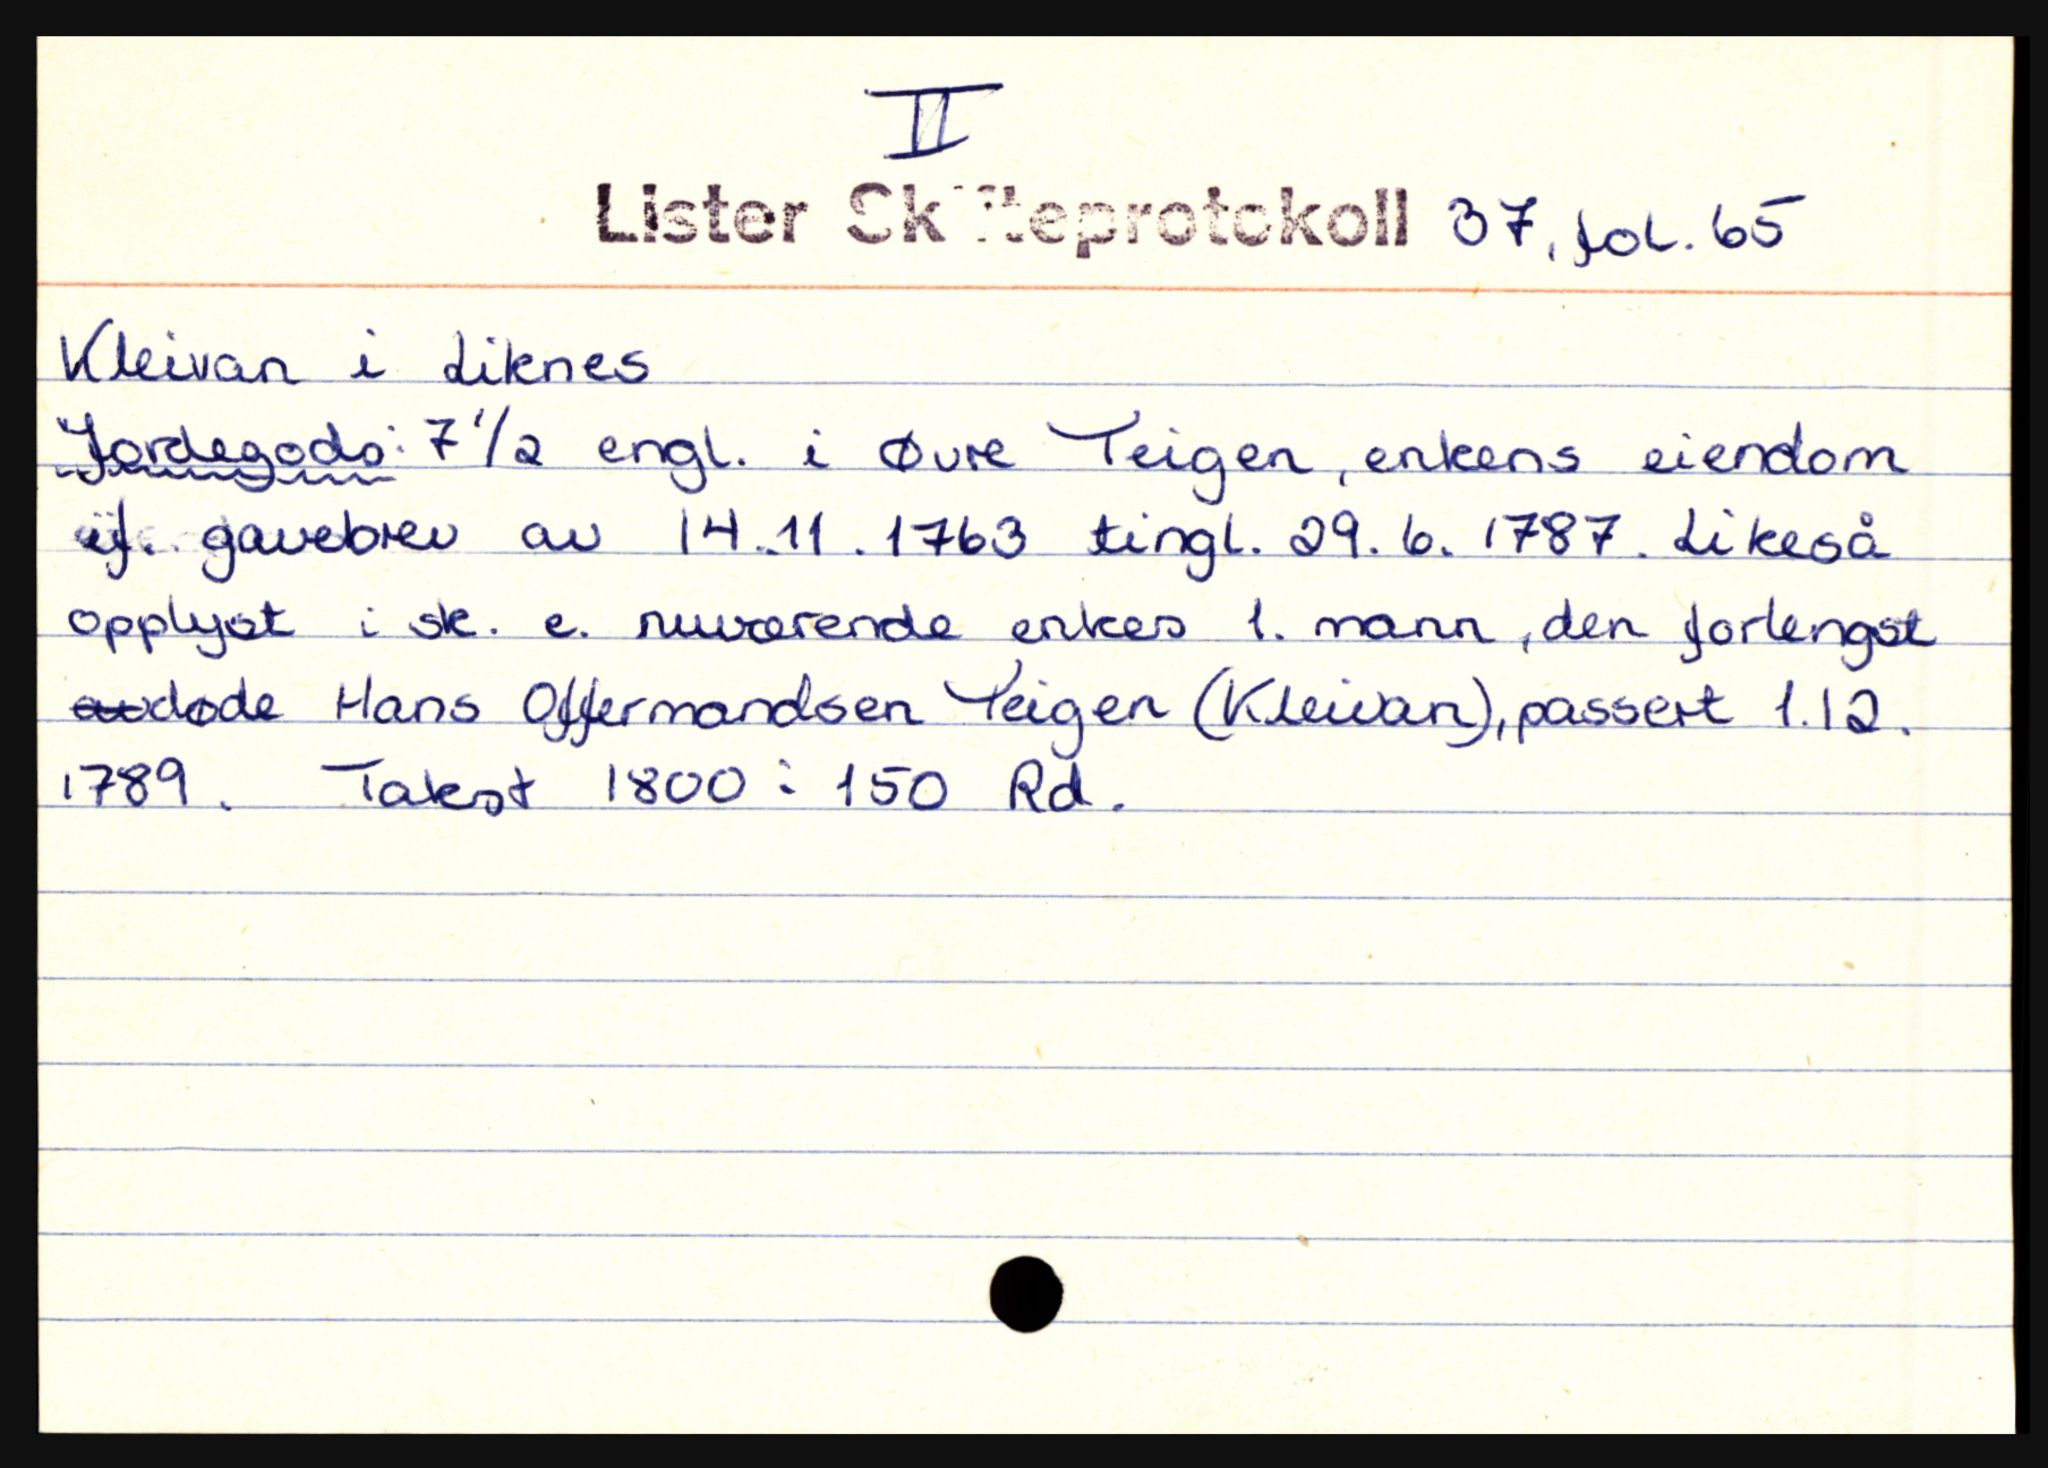 II
Lister Skifteprotokoll 37, fol. 65
Kleivan i Liknes
Jordegods: 7 1/2 engl. i Øvre Teigen, enkens eiendom
iff. gavebrev av 14.11.1763 tingl. 29.6.1787. Likeså
opplyst i sk. e. nuværende enkes 1. mann, den forlengst
avdøde Hans Offermandsen Teigen (Kleivan), passert 1.12.
1789. Takst 1800: 150 Rd.